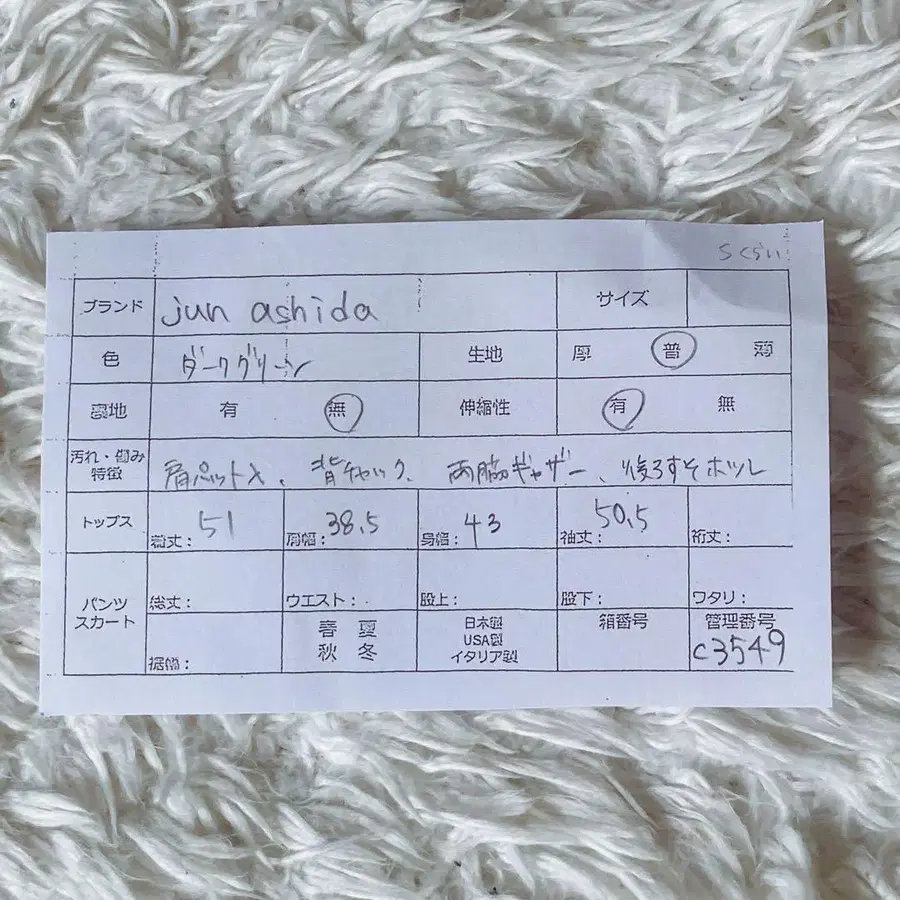 Sくらい
ブランド jun ashida サイズ
色 ダークグリーン 生地 厚 普 薄
裏地 有 無 伸縮性 有 無
汚れ・傷み
特徴 肩パット入、背チャック、両脇ギャザー、後ろすそホツレ
トップス 着丈: 51 肩幅: 38.5 身幅: 43 袖丈: 50.5 裄丈:
パンツ
スカート 総丈: ウエスト: 股上: 股下: ワタリ:
裾幅: 春 夏 秋 冬 日本製 USA製 イタリア製 箱番号 管理番号
c3549